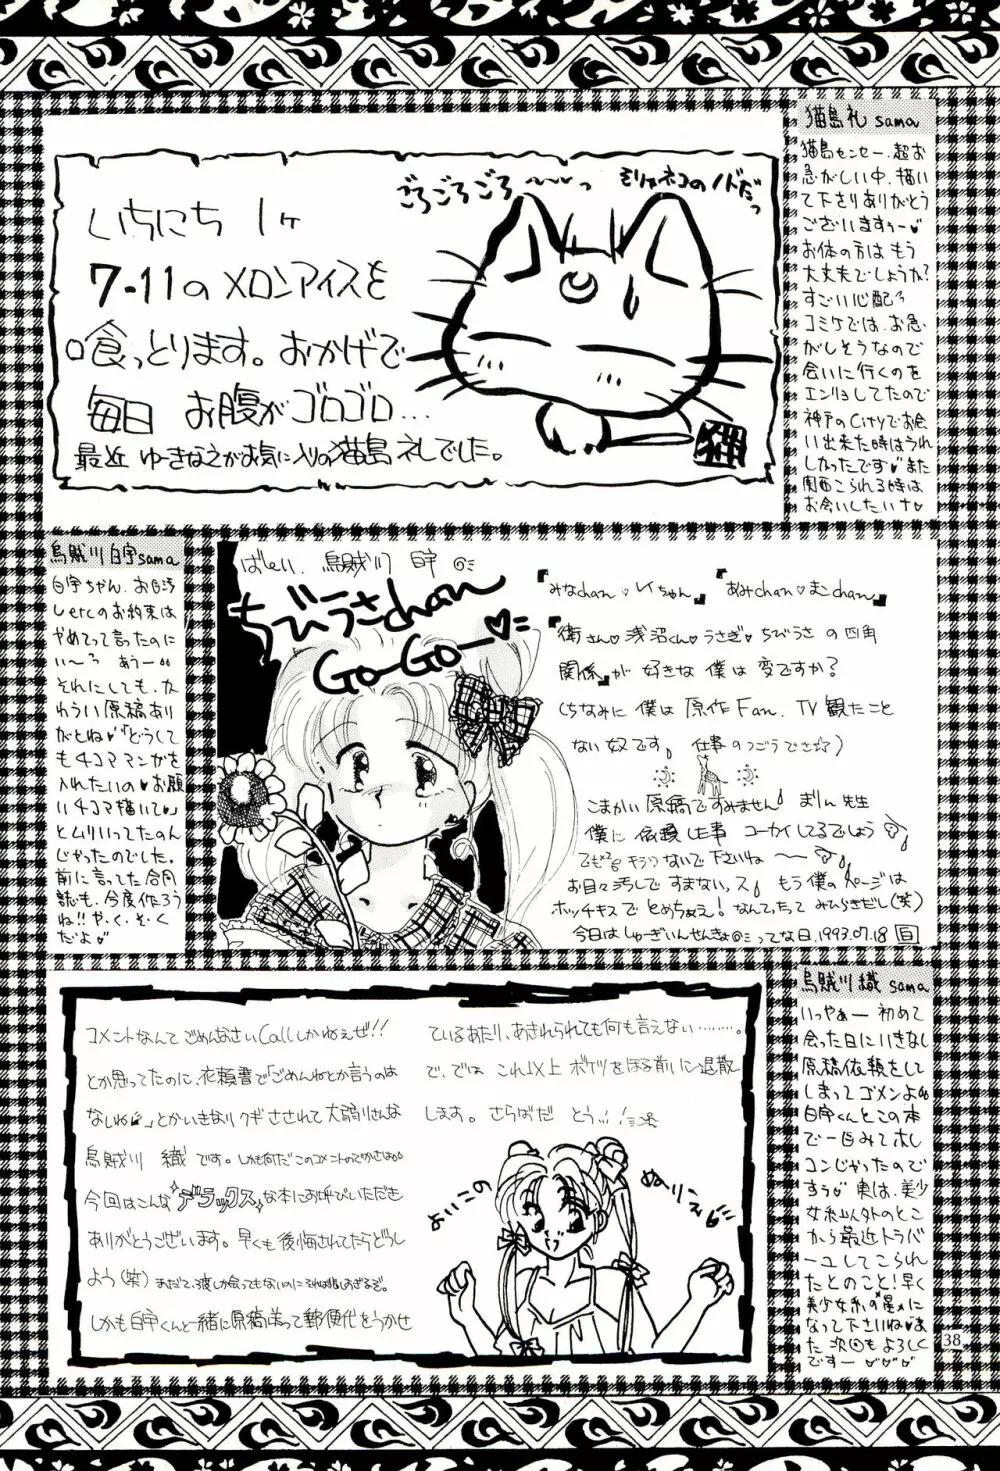 猫島礼 sama
猫島センセー、超お
急がしい中、描い
て下さりありがとう
ございますぅー♥
お体の方はもう
大丈夫でしょうか?
すごい心配〜
コミケでは、お急
がしそうなので
会いに行くのを
エンリョしてたので
神戸のCityでお会
い出来た時はうれ
しかったです♥また
関西こられる時は
お会いしたいナ♥
ごろごろごろ〜〜っ
いちにち 1ヶ
7-11のメロンアイスを
喰っとります。おかげで
毎日 お腹がゴロゴロ…
最近 ゆーきなえがお気に入りの猫島礼でした。
猫
烏賊川白宇sama
白宇ちゃん、お目汚
しetcのお約束は
やめてって言ったのに
い〜? あぅー。。
それにしても、か
わうい原稿あり
がとね♥「どうして
も4コママンガを
入れたいの♥お願
い4コマ描いて♥」
とムリいってたのん
じゃったのでした。
前に言ってた合同
誌も、今度作ろう
ね!!や・く・そ・く
だよ♥
ちびうさchan
Go-Go-♥
『みなchan♡レイちゃん』『あみchan♡まこchan』
『衛さん♡浅沼くん♡うさぎ♡ちびうさの四角
関係』が好きな僕は変ですか?
ちなみに僕は原作Fan、TV観たこと
ない奴です。 仕事のつごうでさ☆)
こまかい原稿ですみません! まりん先生
僕に依頼した事コーカイしてるでしょう
でも キラわないで下さいね〜
お目々汚しですまないっス。もう僕のページは
ホッチキスでとめちゃえ! なんてったってみひらきだし(笑)
1993.07.18
烏賊川 織 sama
いっやぁー初めて
会った日にいきなし
原稿依頼をして
しまってゴメンよぉ
白宇くんとこの本
で一目みてホレ
コンじゃったので
すぅ♥実は、美少
女系以外のとこ
から最近トラバ
ーユしてこられ
たとのこと!早く
美少女系の星に
なって下さいね♥ま
た次回もよろしく
でずー♥♥♥
コメントなんてごめんなさいCallしかねぇぜ!!
とか思ってたのに、依頼書で「ごめんねとか言うのは
なしね♥」とかいきなりクギさされて大弱りさんな
烏賊川 織です。しかも何だこのコメントのでかさは。。
今回はこんなデラックスな本にお呼びいただき
ありがとうございます。早くも後悔されてたらどうし
よう(笑)まだたった1度しか会ってもないのにそれは悲しすぎるぞ。
しかも白宇くんと一緒に原稿送って郵便代をうかせ
ているあたり、あきれられても何も言えない………。
で、では これ以上 ボケツをほる前に退散
します。さらばだ とうっ!!
よいこの
ぬりえ
38